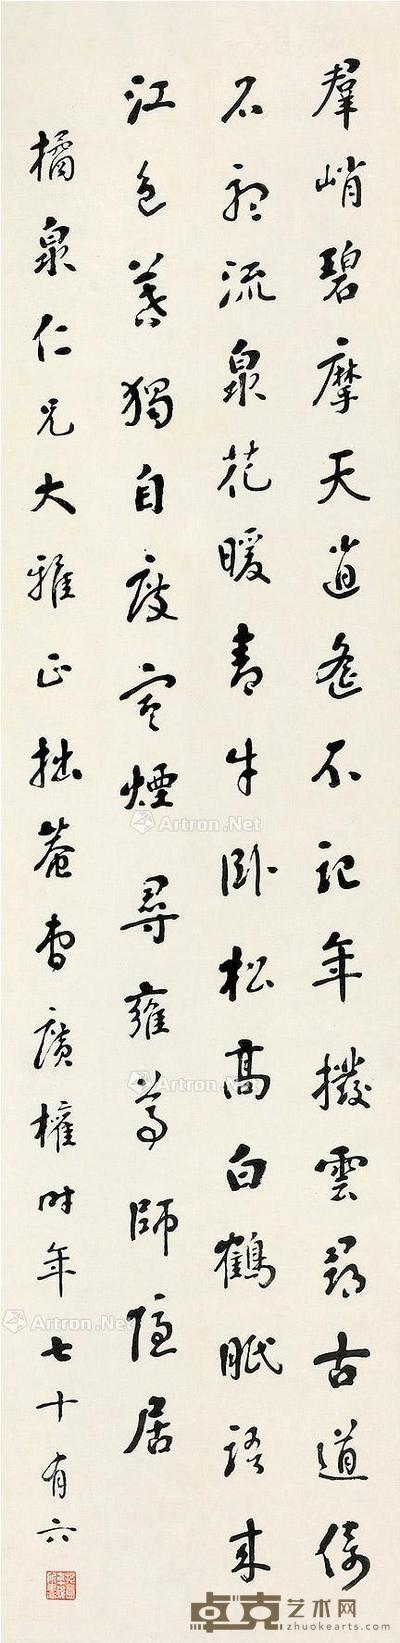 羣峭碧摩天逍遙不記年撥雲尋古道倚
石聽流泉花暖青牛臥松高白鶴眠語來
江色暮獨自度寒煙 尋雍尊師隱居
橘泉仁兄大雅正拙菴曹廣權時年七十有六
Artron.Net
Artron.Net
Artron.Net
Artron.Net
卓克艺术网
zhuokearts.com